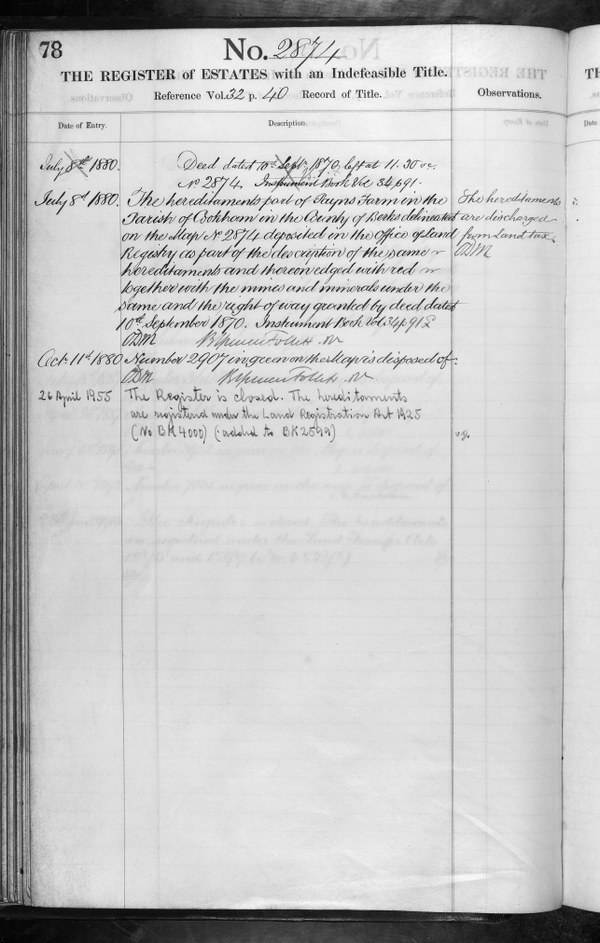 78
No. 2874
THE REGISTER of ESTATES with an Indefeasible Title.
Reference Vol. 32 p. 40 Record of Title. Observations.
Date of Entry. Description.
July 8th 1880. Deed dated 10th Septr 1870, left at 11.30 oc.
No 2874. Instrument Book Vol 34 p 91.
July 8th 1880. The hereditaments part of Rayns Farm in the The hereditaments
Parish of Cookham in the County of Berks delineated are discharged
on the Map No 2874 deposited in the Office of Land from Land tax.
Registry as part of the description of the same
hereditaments and thereon edged with red
together with the mines and minerals under the
same and the right of way granted by deed dated
10th September 1870. Instrument Book Vol 34 p 91
Oct. 11th 1880 Number 2907 in green on the Map is disposed of.
26 April 1955 The Register is closed. The hereditaments
are registered under the Land Registration Act 1925
(No BK 4000) (added to BK 2599)
TH